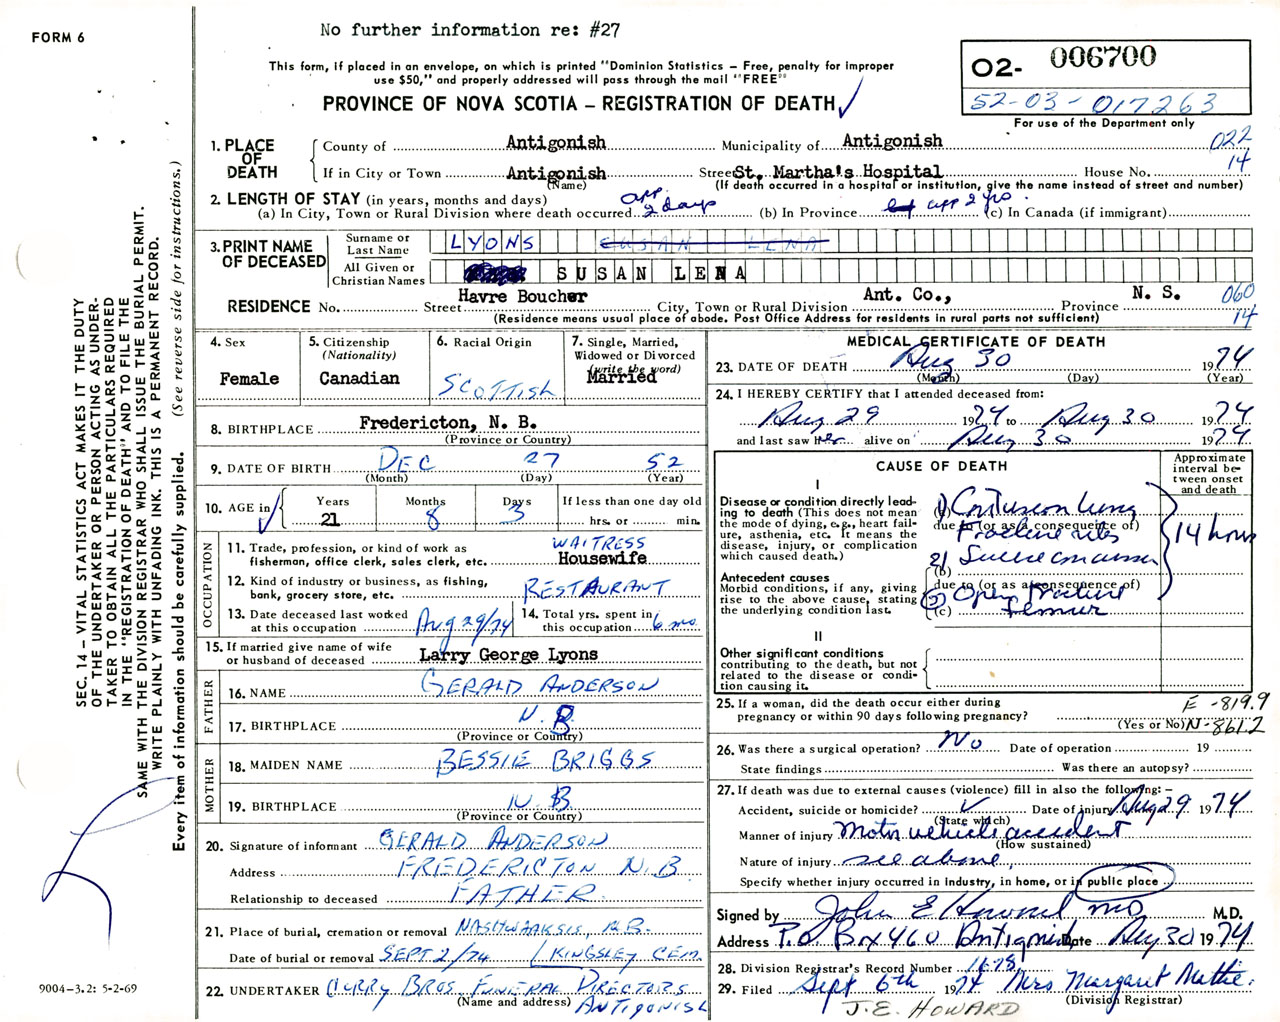 FORM 6
No further information re: #27
This form, if placed in an envelope, on which is printed "Dominion Statistics – Free, penalty for improper
use $50," and properly addressed will pass through the mail "FREE"
PROVINCE OF NOVA SCOTIA – REGISTRATION OF DEATH
02- 006700
52-03-017263
For use of the Department only
1. PLACE OF DEATH
County of Antigonish Municipality of Antigonish 022
If in City or Town Antigonish Street St. Martha's Hospital House No. 14
(Name) (If death occurred in a hospital or institution, give the name instead of street and number)
2. LENGTH OF STAY (in years, months and days)
(a) In City, Town or Rural Division where death occurred app 2 days (b) In Province app 2 yrs. (c) In Canada (if immigrant)
3. PRINT NAME OF DECEASED
Surname or Last Name LYONS SUSAN LENA
All Given or Christian Names SUSAN LENA
RESIDENCE No. Street Havre Boucher City, Town or Rural Division Ant. Co., Province N. S. 060
(Residence means usual place of abode. Post Office Address for residents in rural parts not sufficient) 14
4. Sex
Female
5. Citizenship
(Nationality)
Canadian
6. Racial Origin
SCOTTISH
7. Single, Married,
Widowed or Divorced
(write the word)
Married
8. BIRTHPLACE Fredericton, N. B.
(Province or Country)
9. DATE OF BIRTH DEC 27 52
(Month) (Day) (Year)
10. AGE in
Years 21
Months 8
Days 3
If less than one day old
hrs. or min.
OCCUPATION
11. Trade, profession, or kind of work as
fisherman, office clerk, sales clerk, etc. WAITRESS Housewife
12. Kind of industry or business, as fishing,
bank, grocery store, etc. RESTAURANT
13. Date deceased last worked
at this occupation Aug 29/74
14. Total yrs. spent in
this occupation 6 mo
15. If married give name of wife
or husband of deceased Larry George Lyons
FATHER
16. NAME GERALD ANDERSON
17. BIRTHPLACE N. B
(Province or Country)
MOTHER
18. MAIDEN NAME BESSIE BRIGGS
19. BIRTHPLACE N. B
(Province or Country)
20. Signature of informant GERALD ANDERSON
Address FREDERICTON N. B
Relationship to deceased FATHER
21. Place of burial, cremation or removal NASHWAAKSIS, N.B.
Date of burial or removal SEPT 2/74 KINGSLEY CEM.
22. UNDERTAKER CURRY BROS FUNERAL DIRECTORS
(Name and address) ANTIGONISH
MEDICAL CERTIFICATE OF DEATH
23. DATE OF DEATH Aug 30 1974
(Month) (Day) (Year)
24. I HEREBY CERTIFY that I attended deceased from:
Aug 29 1974 to Aug 30 1974
and last saw her alive on Aug 30 1974
CAUSE OF DEATH
Approximate
interval be-
tween onset
and death
I
Disease or condition directly lead-
ing to death (This does not
the mode of dying, e.g., heart fail-
ure, asthenia, etc. It means the
disease, injury, or complication
which caused death.)
Antecedent causes
Morbid conditions, if any, giving
rise to the above cause, stating
the underlying condition last.
1) Contusion lung
due to (or as a consequence of)
Fracture ribs
2)
(b)
due to (or as a consequence of)
Open fracture
(c) femur
14 hours
II
Other significant conditions
contributing to the death, but not
related to the disease or condi-
tion causing it.
25. If a woman, did the death occur either during
pregnancy or within 90 days following pregnancy?
(Yes or No)
E -819.9
N-861.2
26. Was there a surgical operation? No Date of operation 19
State findings Was there an autopsy?
27. If death was due to external causes (violence) fill in also the following: –
Accident, suicide or homicide? Date of injury Aug 29 1974
(State which)
Manner of injury Motor vehicle accident
(How sustained)
Nature of injury see above,
Specify whether injury occurred in Industry, in home, or in public place
Signed by John E Howard MD M.D.
Address P.O. Box 460 Antigonish Date Aug 30 1974
28. Division Registrar's Record Number
29. Filed Sept 6th 1974 Mrs Margaret Mattie.
(Division Registrar)
J.E. HOWARD
SEC. 14 – VITAL STATISTICS ACT MAKES IT THE DUTY
OF THE UNDERTAKER OR PERSON ACTING AS UNDER-
TAKER TO OBTAIN ALL THE PARTICULARS REQUIRED
IN THE "REGISTRATION OF DEATH" AND TO FILE THE
SAME WITH THE DIVISION REGISTRAR WHO SHALL ISSUE THE BURIAL PERMIT.
WRITE PLAINLY WITH UNFADING INK. THIS IS A PERMANENT RECORD.
Every item of information should be carefully supplied. (See reverse side for instructions.)
9004-3.2: 5-2-69